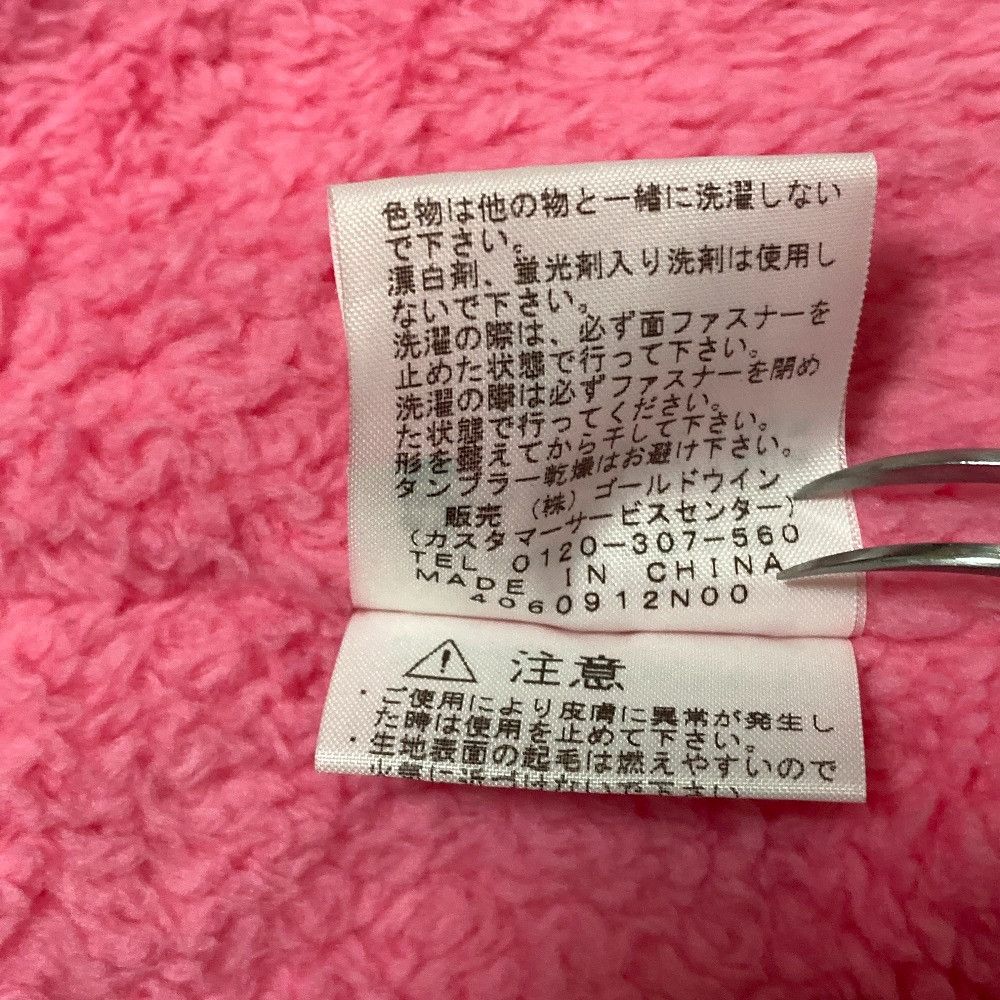 色物は他の物と一緒に洗濯しない
で下さい。
漂白剤、蛍光剤入り洗剤は使用し
ないで下さい。
洗濯の際は、必ず面ファスナーを
止めた状態で行って下さい。
洗濯の際は必ずファスナーを閉め
た状態で行ってください。
形を整えてから干して下さい。
タンブラー乾燥はお避け下さい。
販売 (株)ゴールドウイン
(カスタマーサービスセンター)
TEL 0120-307-560
MADE IN CHINA
4060912N00
注意
・ご使用により皮膚に異常が発生し
た時は使用を止めて下さい。
・生地表面の起毛は燃えやすいので
火気に近づけないで下さい。